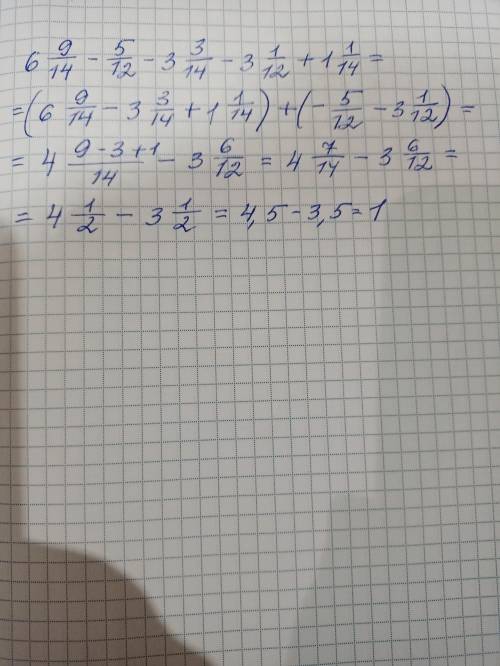 6 9/14 - 5/12 - 3 3/14 - 3 1/12 + 1 1/14 =
= (6 9/14 - 3 3/14 + 1 1/14) + (- 5/12 - 3 1/12) =
= 4 9-3+1/14 - 3 6/12 = 4 7/14 - 3 6/12 =
= 4 1/2 - 3 1/2 = 4,5 - 3,5 = 1